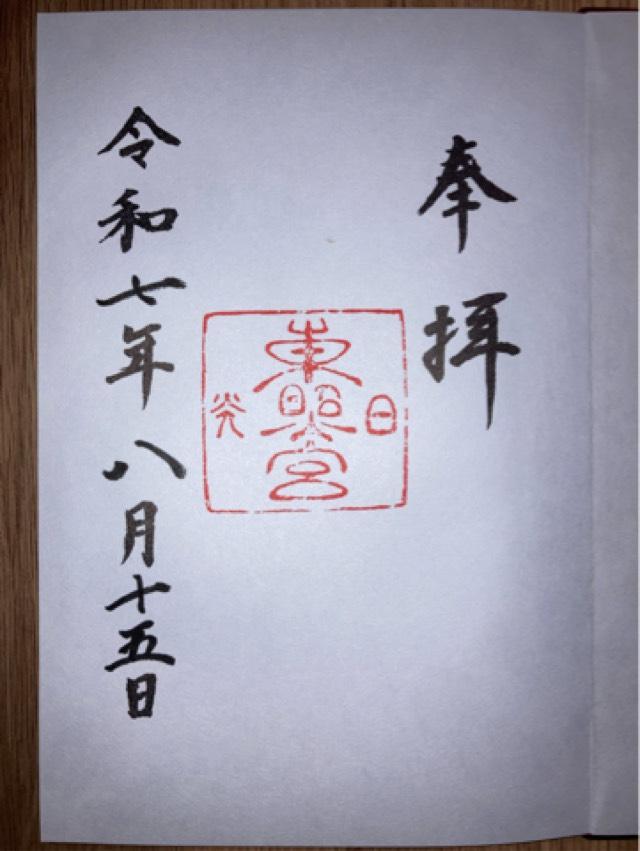 奉拝
日光
東照宮
令和七年八月十五日